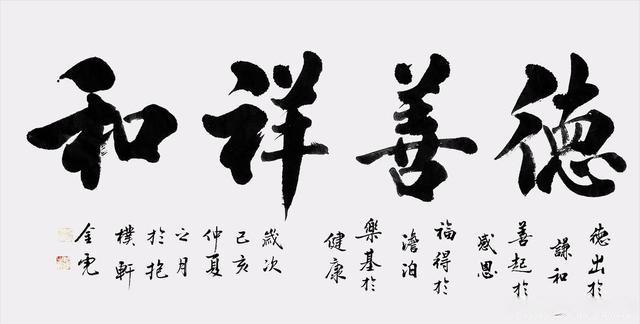 德善祥和
德出於
謙和
善起於
感恩
福得於
澹泊
樂基於
健康
歲次
己亥
仲夏
之月
於抱
樸軒